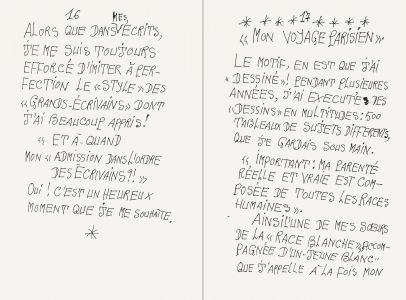 16
ALORS QUE DANS MES ÉCRITS,
JE ME SUIS TOUJOURS
EFFORCÉ D'IMITER À PER-
FECTION LE « STYLE » DES
« GRANDS-ÉCRIVAINS » DONT
J'AI BEAUCOUP APPRIS!
« ET À-QUAND
MON « ADMISSION DANS L'ORDRE
DES ÉCRIVAINS?! »
OUI! C'EST UN HEUREUX
MOMENT QUE JE ME SOUHAITE.
17
« MON VOYAGE PARISIEN »
LE MOTIF, EN EST QUE J'AI
« DESSINÉ »! PENDANT PLUSIEURES
ANNÉES, J'AI EXECUTÉ DES
« DESSINS » EN MULTITUDES: 500
TABLEAUX DE SUJETS DIFFÉRENTS,
QUE JE GARDAIS SOUS MAIN.
« IMPORTANT: MA PARENTÉ
RÉELLE ET VRAIE EST COM-
POSÉE DE TOUTES LES RACES
HUMAINES ».
AINSI L'UNE DE MES SŒURS
DE LA « RACE BLANCHE » ACCOM-
PAGNÉE D'UN-JEUNE BLANC-
QUE J'APPELLE À-LA FOIS MON